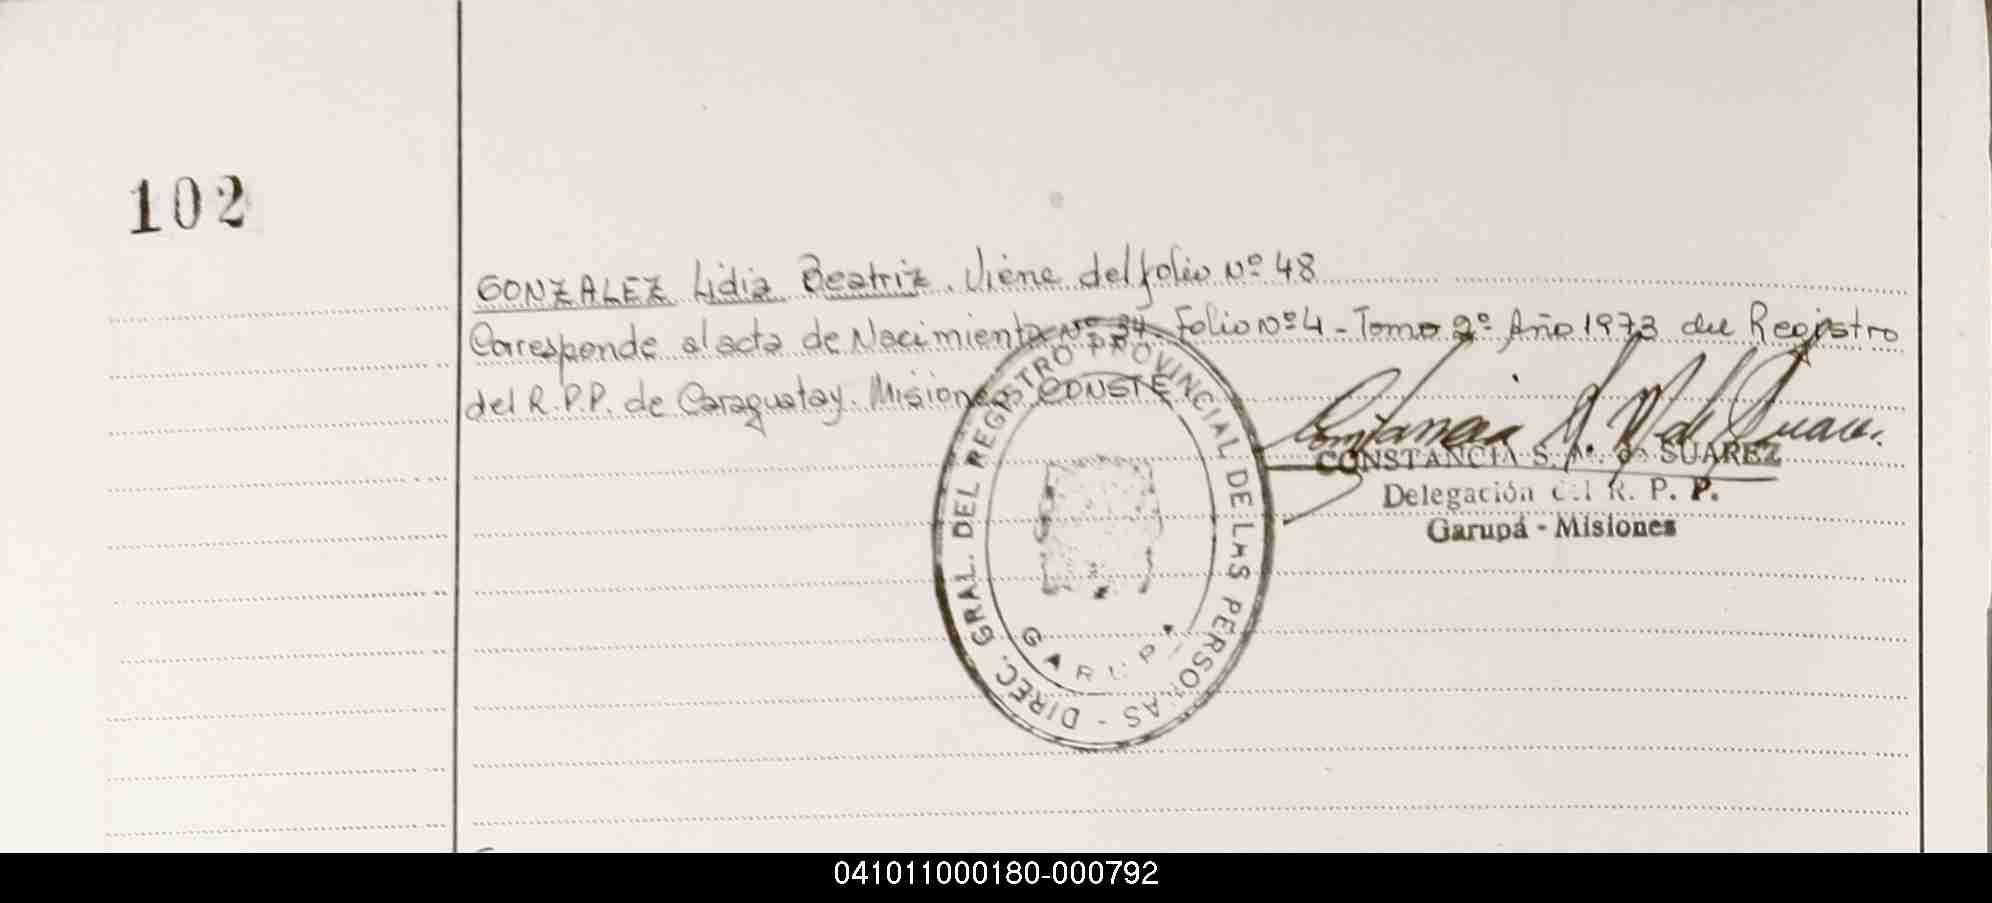 102
GONZALEZ Lidia Beatriz. Viene del folio Nº 48
Corresponde al acta de Nacimiento Nº 34 Folio Nº 4 - Tomo 2º Año 1973 del Registro
del R.P.P. de Caraguatay. Misiones CONSTE
CONSTANCIA S. M. de SUAREZ
Delegación del R. P. P.
Garupá - Misiones
DIREC. GRAL. DEL REGISTRO PROVINCIAL DE LAS PERSONAS -
GARUPA
041011000180-000792